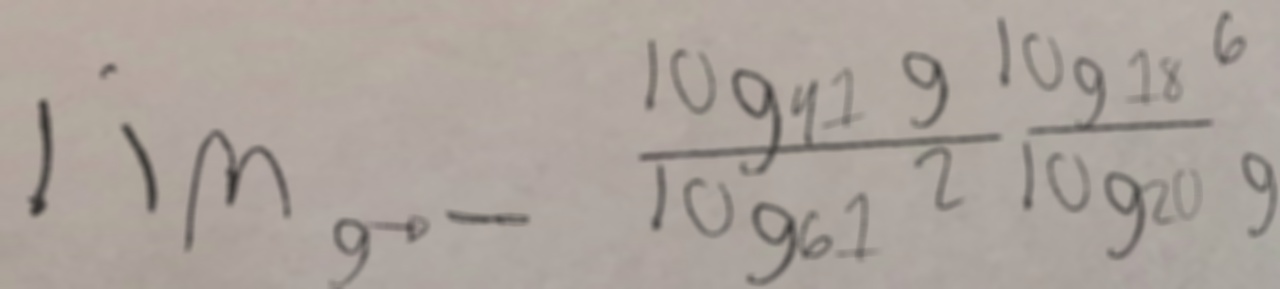 lim_{g→-} \frac{log_{41} g}{log_{61} 2} \frac{log_{18} 6}{log_{20} g}